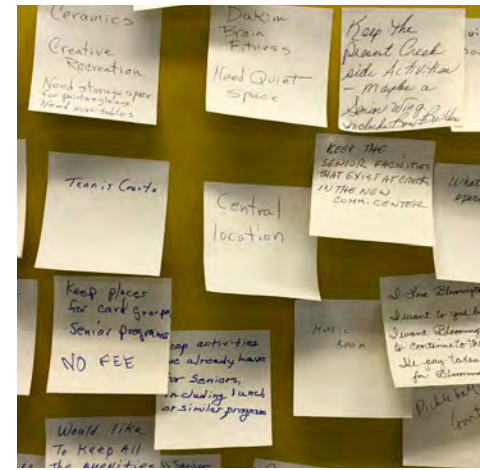 Ceramics
Creative
Recreation
Need storage space
for paints + glazes
Dakim
Brain
Fitness
Need Quiet
Space
Keep the
present Creek
side Activities
- maybe a
Senior Wing
Tennis Courts
Central
location
KEEP THE
SENIOR FACILITIES
THAT EXIST AT CREEK
IN THE NEW
COMM. CENTER
What
Keep places
for card groups,
Senior programs
NO FEE
activities
already have
Seniors,
including lunch
or similar program
MUSIC
ROOM
I love Blooming
I want to
I want Blooming
to continue to
pay taxes
for Bloomin
Pickle ball
Would like
To Keep All
The amenities